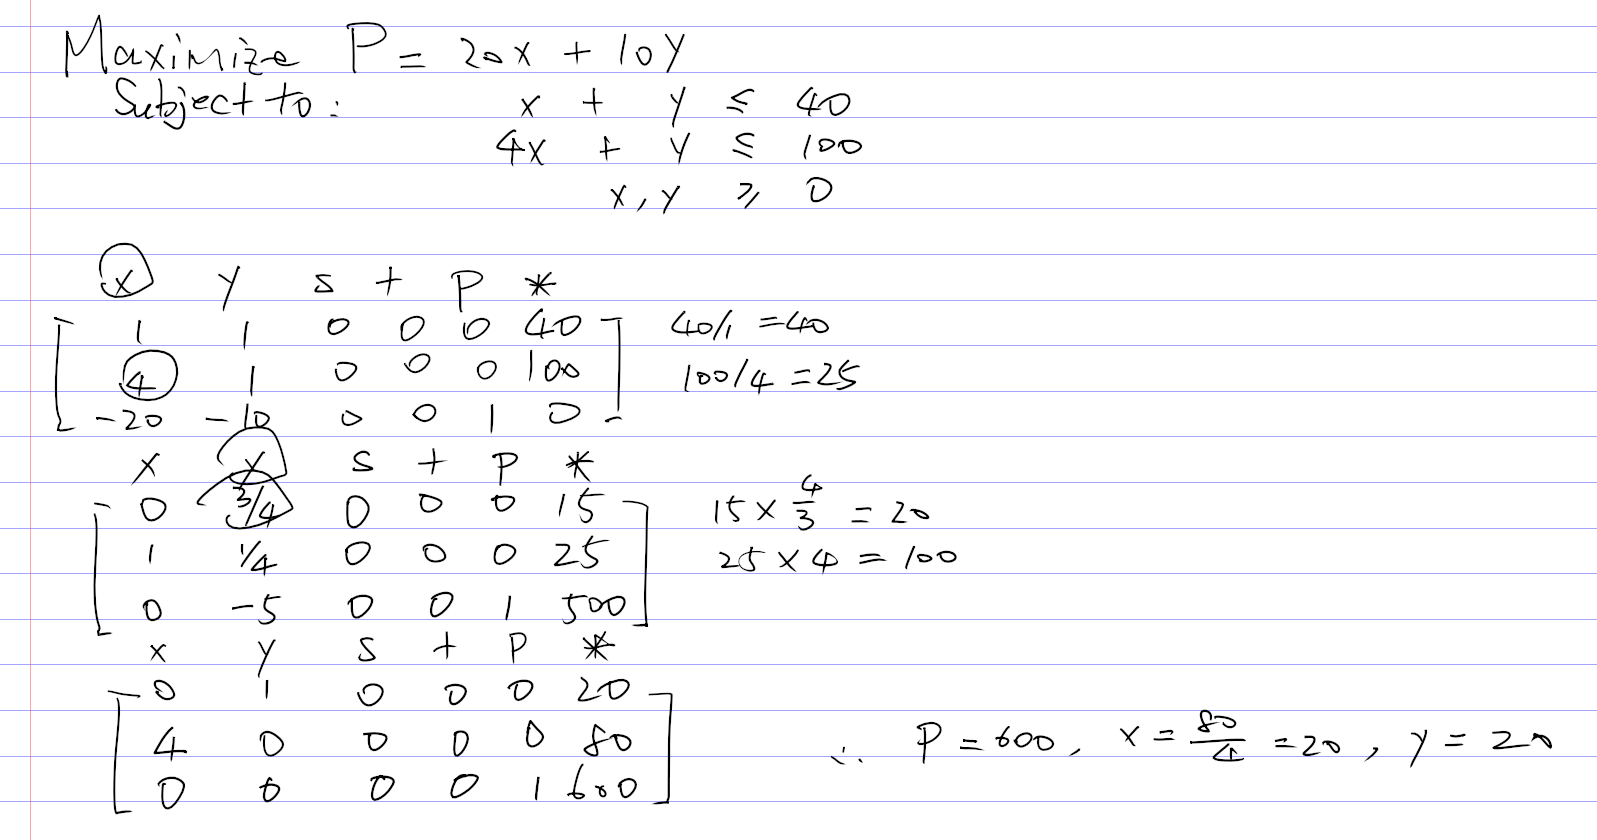 Maximize P = 20x + 10y
Subject to:
x + y ≤ 40
4x + y ≤ 100
x, y ≥ 0
x y s t P *
1 1 0 0 0 40 40/1 = 40
4 1 0 0 0 100 100/4 = 25
-20 -10 0 0 1 0
x y s t P *
0 3/4 0 0 0 15 15 × 4/3 = 20
1 1/4 0 0 0 25 25 × 4 = 100
0 -5 0 0 1 500
x y s t P *
0 1 0 0 0 20
4 0 0 0 0 80 ∴ P = 600, x = 80/4 = 20, y = 20
0 0 0 0 1 600